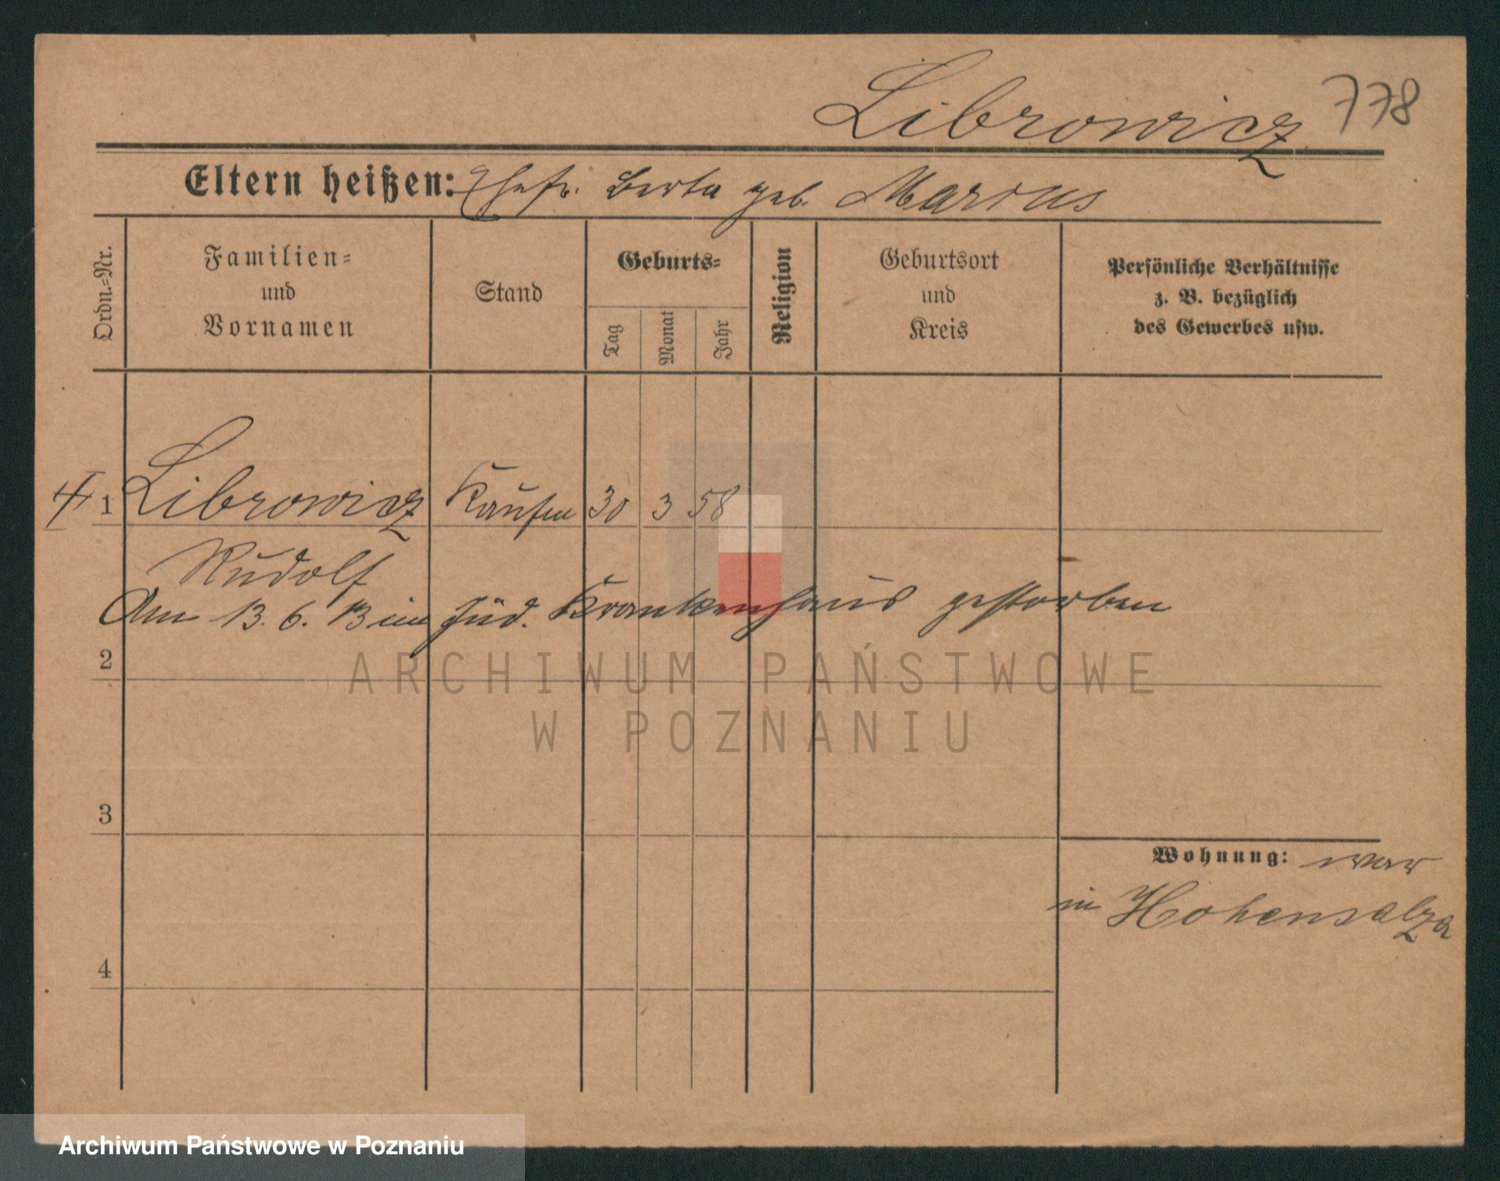 Librowicz 778
Eltern heißen: Ehefr. Berta geb. Marcus
Ordn.-Nr.
Familien-
und
Vornamen
Stand
Geburts-
Tag
Monat
Jahr
Religion
Geburtsort
und
Kreis
Persönliche Verhältnisse
z. B. bezüglich
des Gewerbes usw.
1 Librowicz Kaufm 30 3 58
Rudolf
Am 13. 6. 13 im jüd. Krankenhaus gestorben
2
ARCHIWUM PAŃSTWOWE
W POZNANIU
3
Wohnung: war
in Hohensalza
4
Archiwum Państwowe w Poznaniu